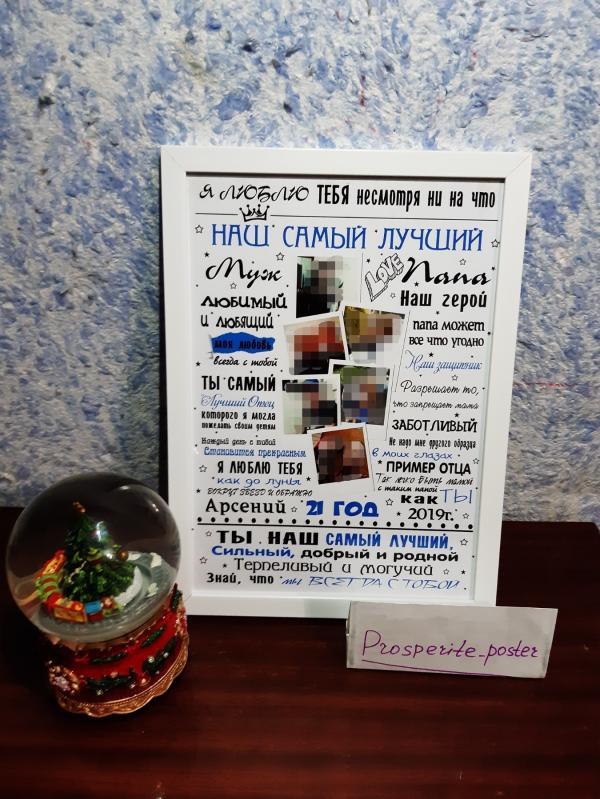 Я ЛЮБЛЮ ТЕБЯ несмотря ни на что
НАШ САМЫЙ ЛУЧШИЙ
Муж
ЛЮБИМЫЙ
И ЛЮБЯЩИЙ
моя любовь
всегда с тобой
ТЫ САМЫЙ
Лучший Отец
которого я могла
пожелать своим детям
Каждый день с тобой
Становится прекрасным
Я ЛЮБЛЮ ТЕБЯ
как до луны
ВОКРУГ ЗВЕЗД И ОБРАТНО
LOVE
Папа
Наш герой
папа может
все что угодно
Наш защитник
Разрешает то,
что запрещает мама
ЗАБОТЛИВЫЙ
Не надо мне другого образца
в моих глазах
ПРИМЕР ОТЦА
Так легко быть мамой
с таким папой
как ТЫ
Арсений 21 ГОД 2019г.
ТЫ НАШ САМЫЙ ЛУЧШИЙ,
Сильный, добрый и родной
Терпеливый и могучий
Знай, что мы ВСЕГДА С ТОБОЙ
Prosperite_poster